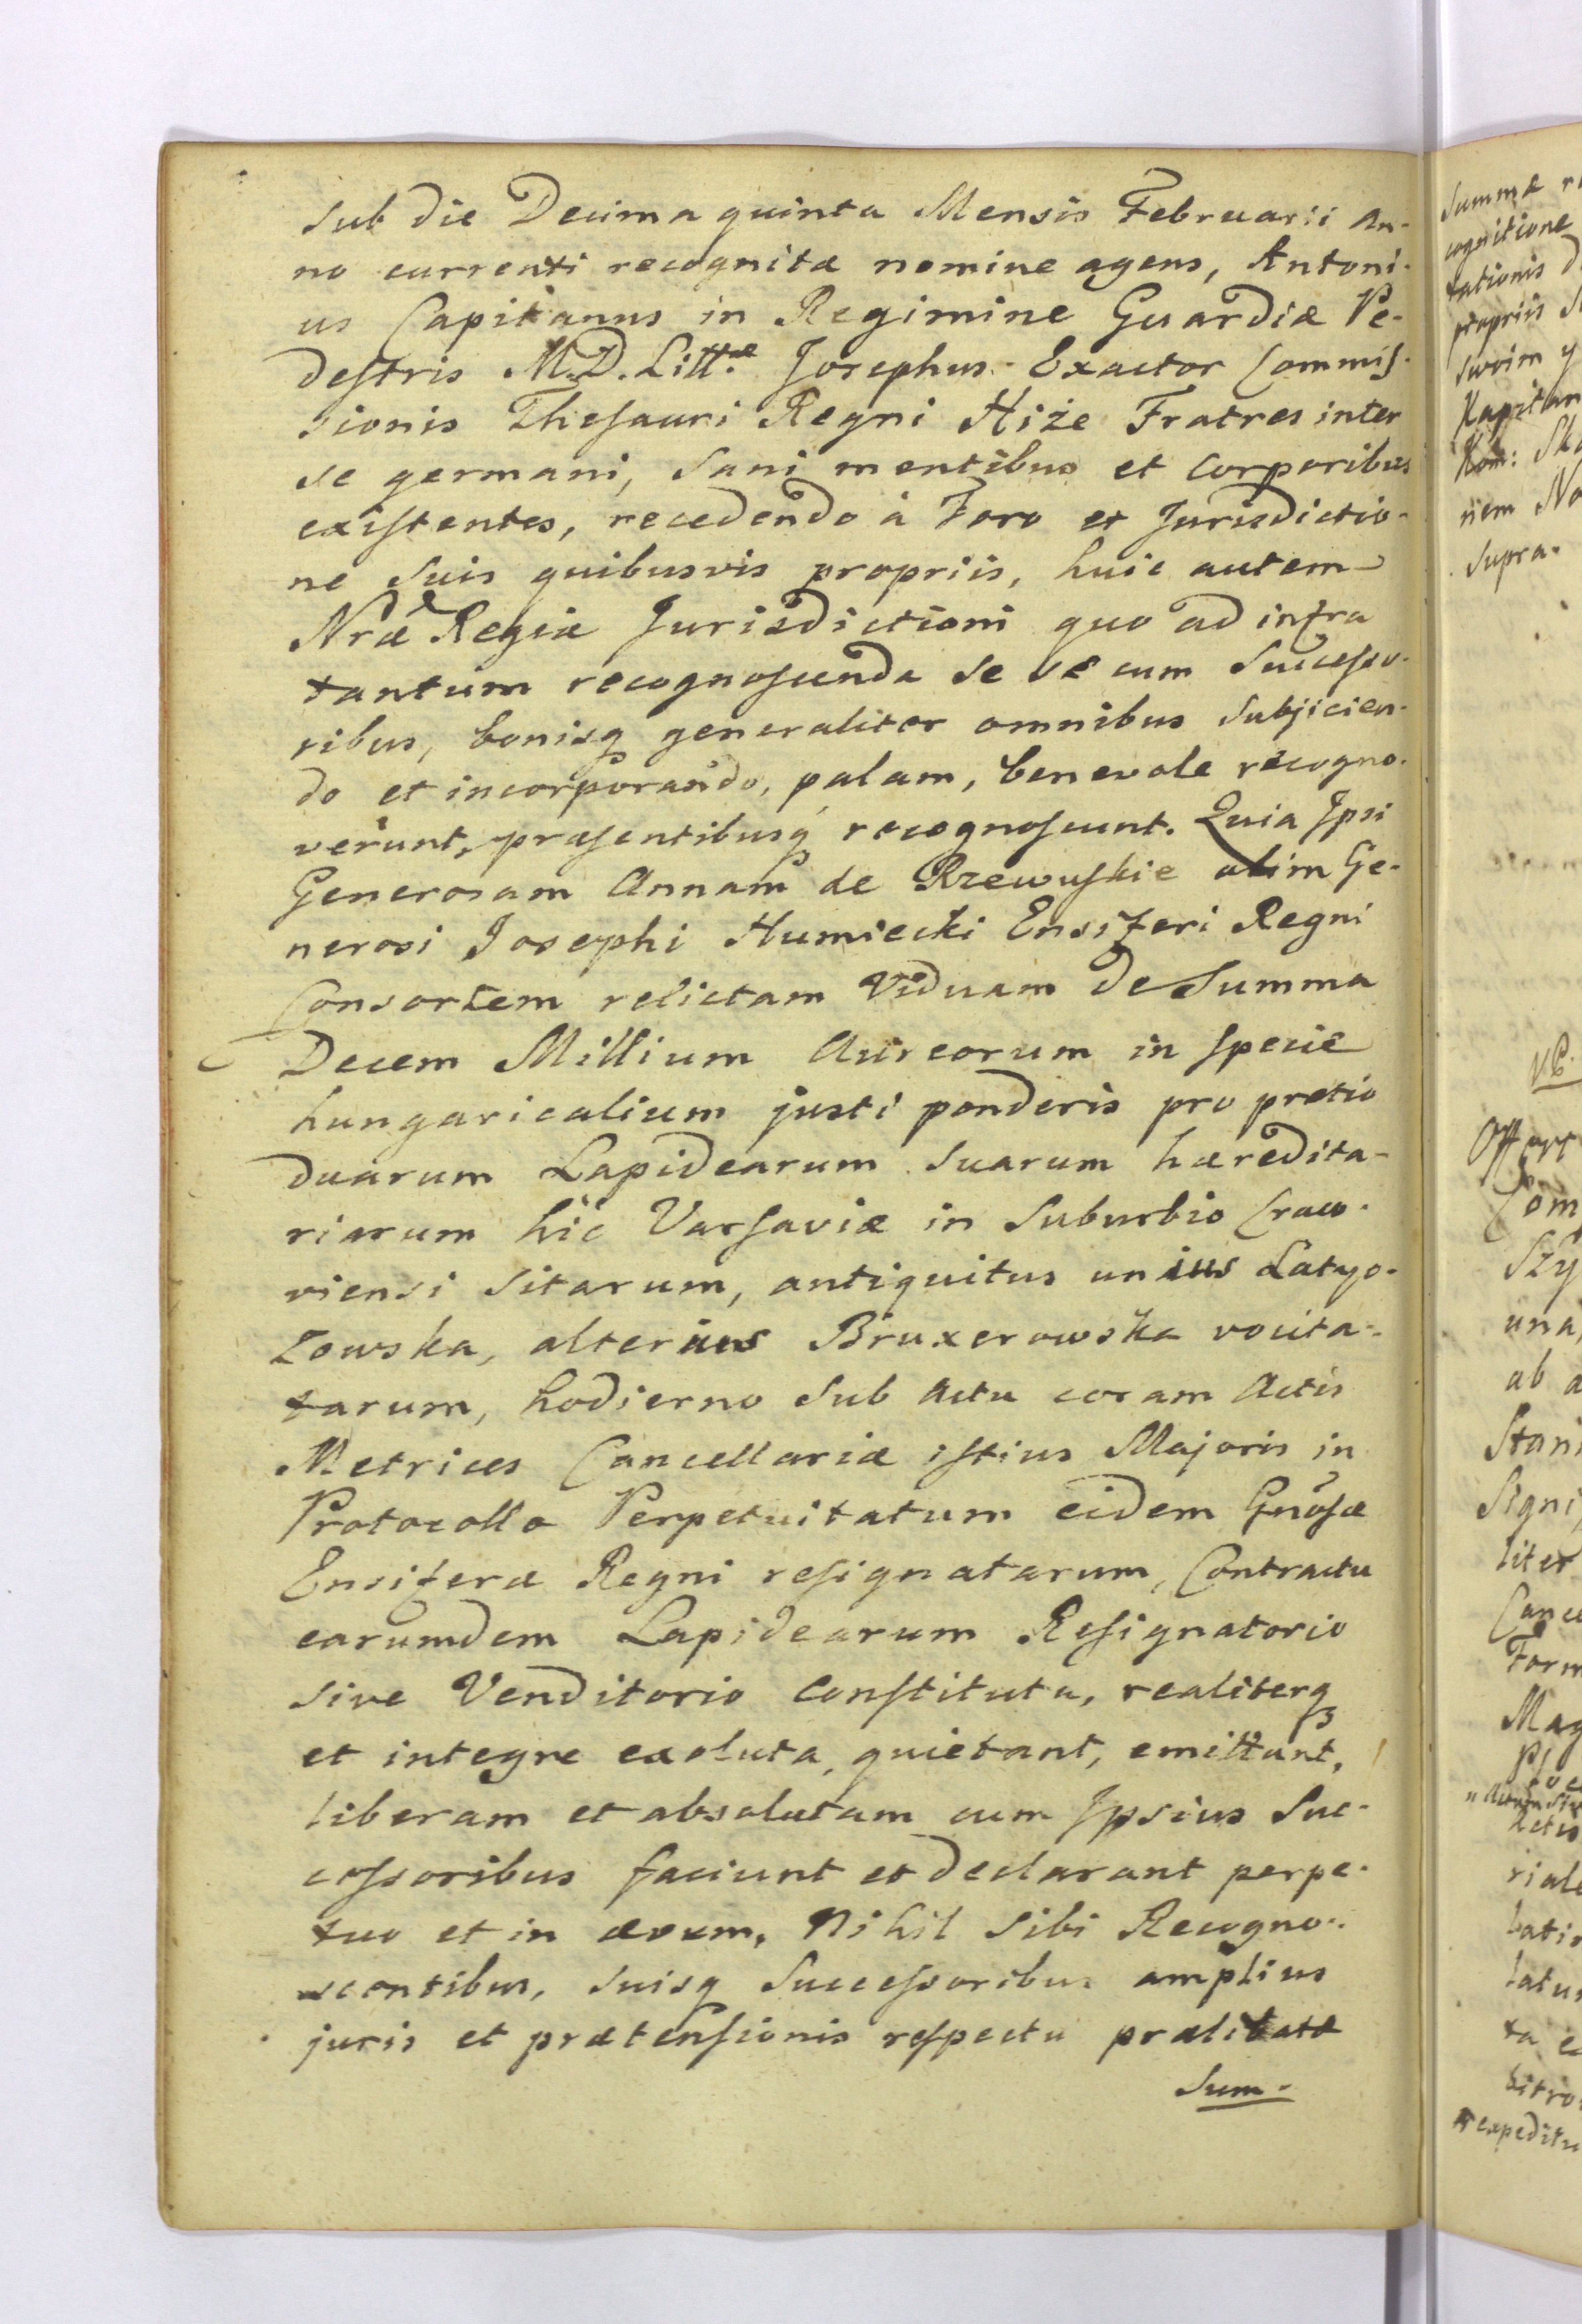 sub die Decima quinta Mensis Februarii An-
no currenti recognitæ nomine agens, Antoni-
us Capitanus in Regimine Guardiæ Pe-
destris M.D.Litt.æ Josephus Exactor Commis-
sionis Thesauri Regni Hiże Fratres inter
se germani, sani mentibus et corporibus
existentes, recedendo à Foro et Jurisdictio-
ne suis quibusvis propriis, huic autem
Nræ Regiæ Jurisdictioni quo ad infra
tantum recognoscenda se se cum Successo-
ribus, bonisq generaliter omnibus subjicien-
do et incorporando, palam, benevole recogno-
verunt, præsentibusq recognoscunt. Quia Ipsi
Generosam Annam de Rzewuskie olim Ge-
nerosi Josephi Humiecki Ensiferi Regni
Consortem relictam Viduam de Summa
Decem Millium Aureorum in specie
hungaricalium justi ponderis pro pretio
duarum Lapidearum suarum hæredita-
riarum hîc Varsaviæ in Suburbio Craco-
viensi sitarum, antiquitus unius Łatyo-
zowska, alterius Bruxerowska vocita-
tarum, hodierno sub actu coram Actis
Metrices Cancellariæ istius Majoris in
Protocollo Perpetuitatum eidem Gnosæ
Ensiferæ Regni resignatarum, Contractu
earumdem Lapidearum Resignatorio
sive Venditorio constituta, realiterq
et integre exoluta, quietant, emittunt,
liberam et absolutam cum Ipsius Suc-
cessoribus faciunt et declarant perpe-
tuo et in ævum, Nihil sibi Recogno-
scentibus, suisq Successoribus amplius
juris et prætensionis respectu prælibatæ
Sum-
Summæ
cognitione
tationis
propriis
swoim
Kapitan
Kom:
niem
Supra.
Com
una,
ab
Stani
Signi
liter
Cance
Form
Mag
riale
batio
latu
ta
expeditu